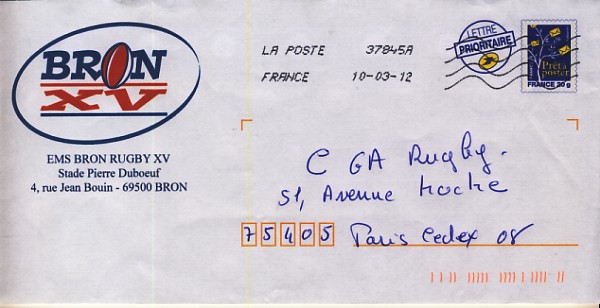 BRON
XV
EMS BRON RUGBY XV
Stade Pierre Duboeuf
4, rue Jean Bouin - 69500 BRON
LA POSTE 37845A
FRANCE 10-03-12
LETTRE
PRIORITAIRE
Prêt à
poster
FRANCE 20 g
C GA Rugby.
51, Avenue Hoche
75405 Paris Cedex 08